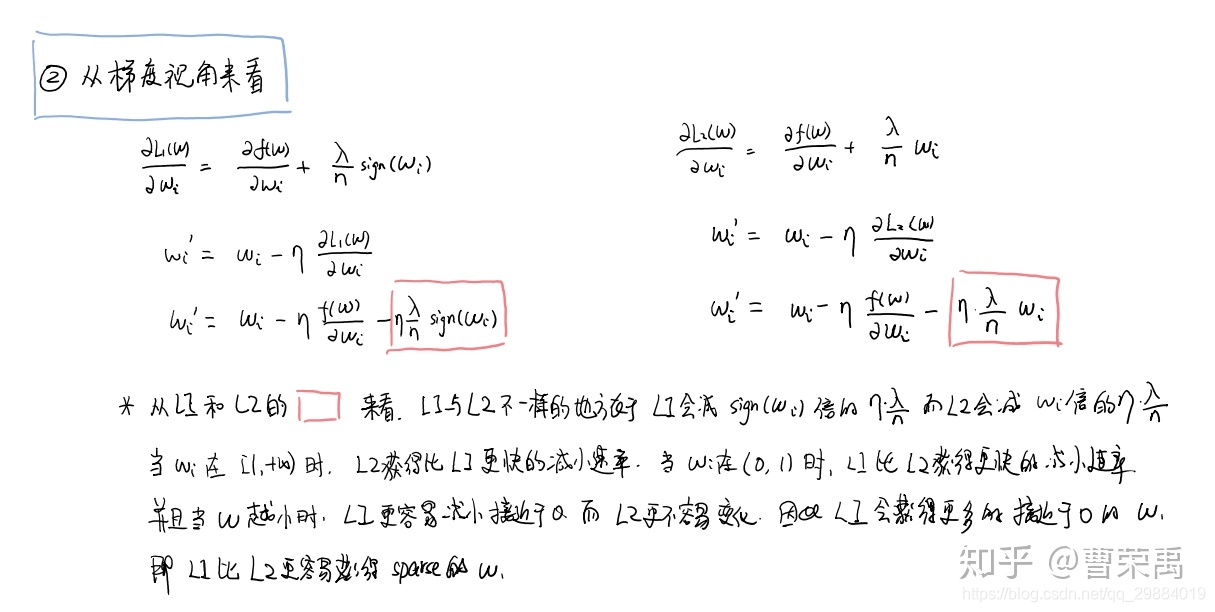 ② 从梯度视角来看
∂L₁(w)/∂wᵢ = ∂f(w)/∂wᵢ + λ/n sign(wᵢ)
wᵢ' = wᵢ - η ∂L₁(w)/∂wᵢ
wᵢ' = wᵢ - η f(w)/∂wᵢ - η λ/n sign(wᵢ)
∂L₂(w)/∂wᵢ = ∂f(w)/∂wᵢ + λ/n wᵢ
wᵢ' = wᵢ - η ∂L₂(w)/∂wᵢ
wᵢ' = wᵢ - η f(w)/∂wᵢ - η·λ/n wᵢ
* 从L1和L2的 来看. L1与L2不一样的地方在于 L1会减 sign(wᵢ) 倍的 η·λ/n 而L2会减 wᵢ倍的η·λ/n
当 wᵢ 在 [1,+∞) 时, L2获得比L1更快的减小速率. 当 wᵢ在(0,1)时, L1比L2获得更快的减小速率.
并且当 w 越小时, L1更容易减小接近于0 而 L2更不容易变化. 因此 L1会获得更多的接近于0的 w.
即 L1比L2更容易获得 sparse的 w.
知乎 @曹荣禹
https://blog.csdn.net/qq_29884019